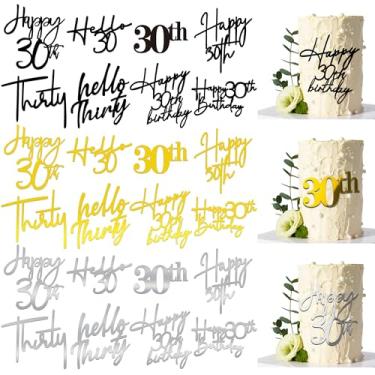 Happy
30th
Hello
30
30th
Happy
30th
Thirty
hello
Thirty
Happy
30th
birthday
Happy 30th
Birthday
Happy
30th
birthday
Happy
30th
Hello
30
30th
Happy
30th
30th
Thirty
hello
Thirty
Happy
30th
birthday
Happy 30th
Birthday
Happy
30th
Hello
30
30th
Happy
30th
Happy
30th
Thirty
hello
Thirty
Happy
30th
birthday
Happy 30th
Birthday